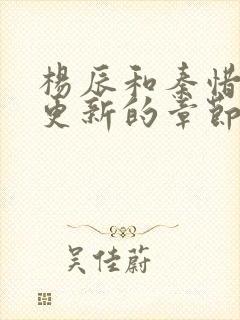 楊辰和秦惜
更新的章節
吴佳蔚